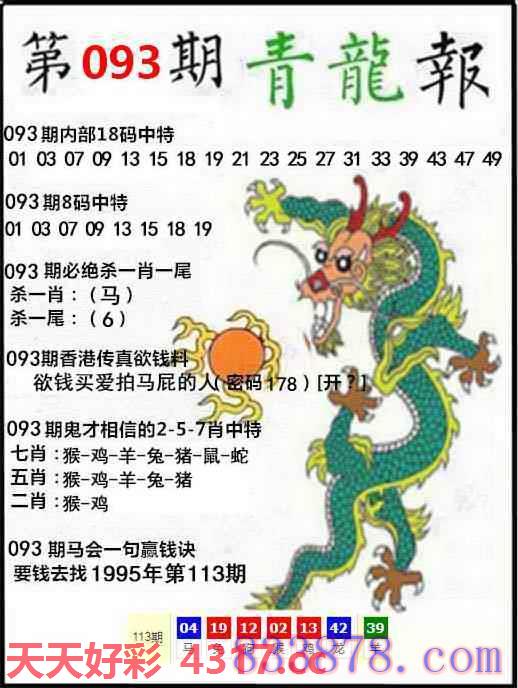 第093期 青龍報
093期内部18码中特
01 03 07 09 13 15 18 19 21 23 25 27 31 33 39 43 47 49
093期8码中特
01 03 07 09 13 15 18 19
093期必绝杀一肖一尾
杀一肖：（马）
杀一尾：（6）
093期香港传真欲钱料
欲钱买爱拍马屁的人(密码178) [开?]
093期鬼才相信的2-5-7肖中特
七肖：猴-鸡-羊-兔-猪-鼠-蛇
五肖：猴-鸡-羊-兔-猪
二肖：猴-鸡
093期马会一句赢钱诀
要钱去找1995年第113期
113期 04 19 12 02 13 42 39
马 兔 猴 鸡 龙 羊
天天好彩 4317.cc
833878.com